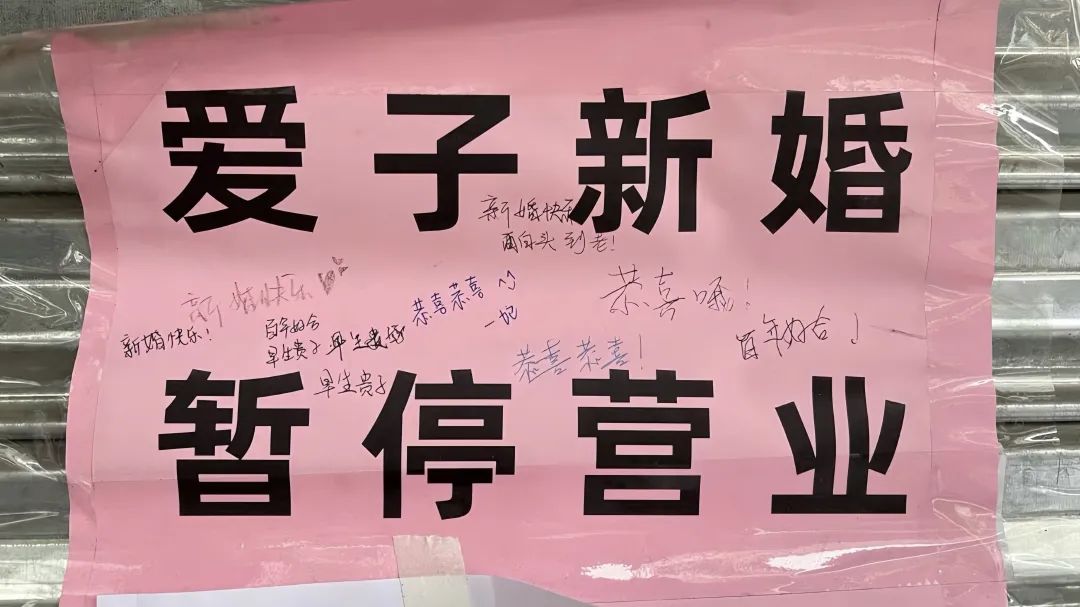 爱子新婚
新婚快乐
白头到老!
恭喜恭喜
一妃
恭喜啊!
新婚快乐
新婚快乐!
百年好合
早生贵子
早生贵子
恭喜恭喜!
百年好合!
暂停营业